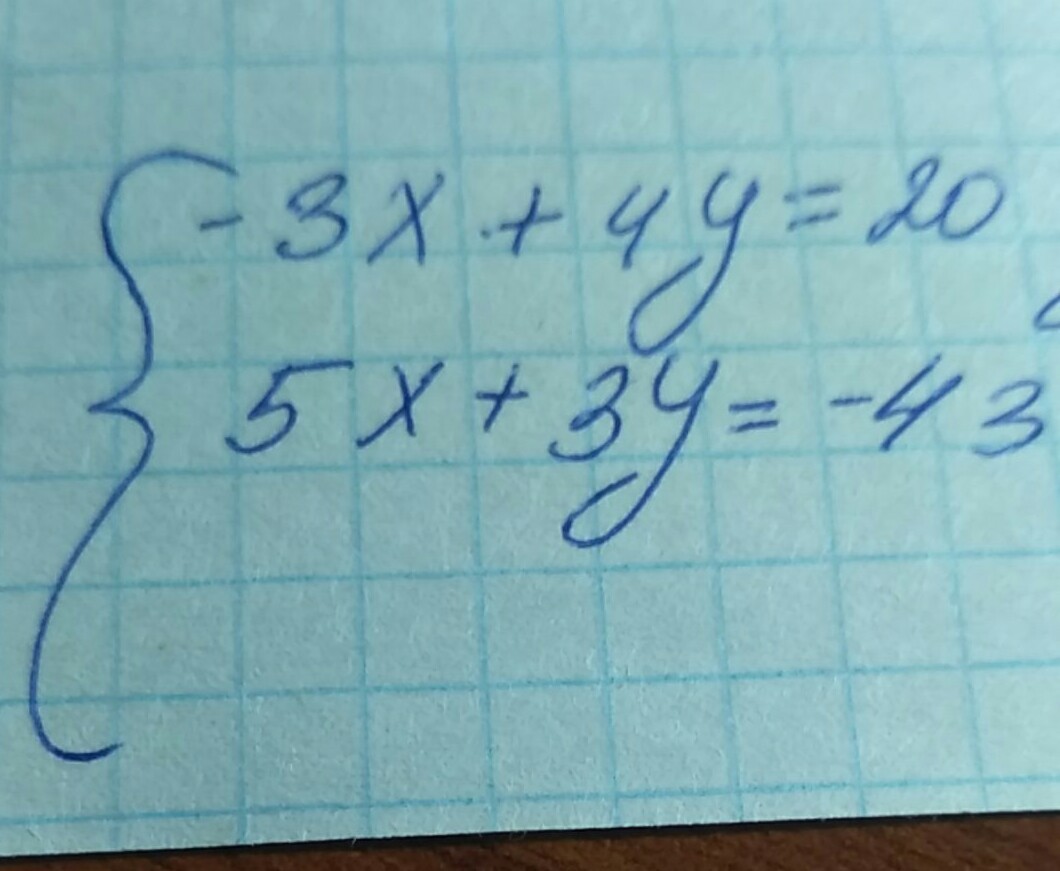 -3x + 4y = 20
5x + 3y = -43